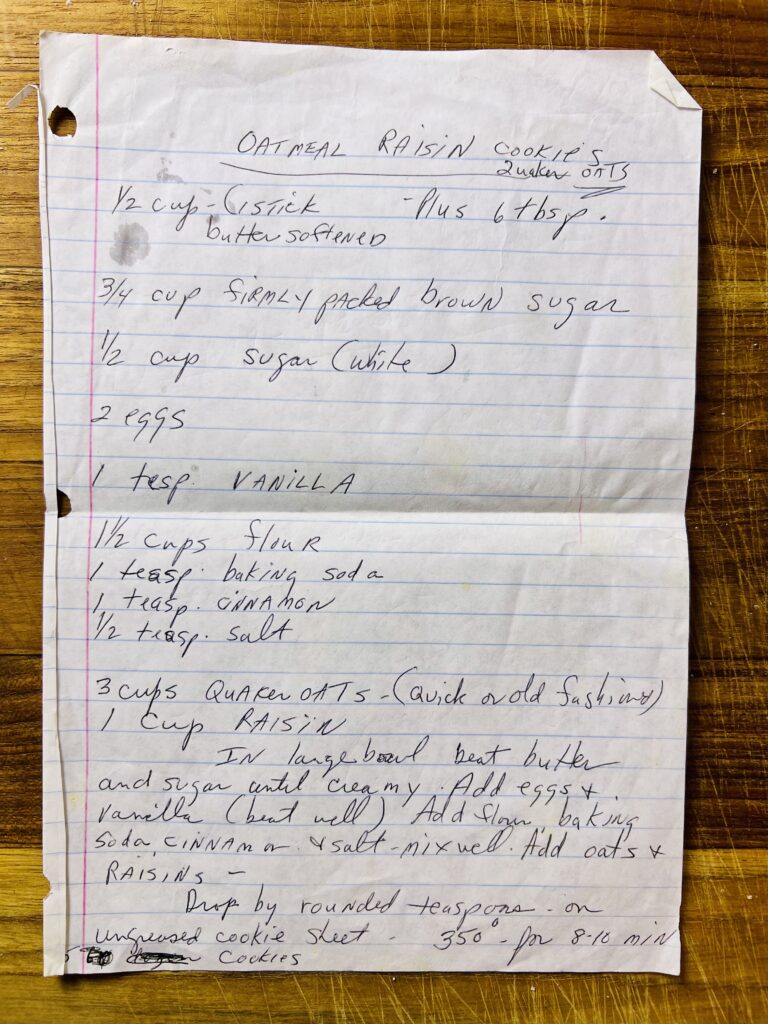 OATMEAL RAISIN COOKIES
Quaker OATS
1/2 cup - (1 STICK - Plus 6 tbsp.
butter softened
3/4 cup firmly packed brown sugar
1/2 cup sugar (white)
2 eggs
1 tesp. VANILLA
1 1/2 cups flour
1 teasp. baking soda
1 teasp. CINNAMON
1/2 teasp. salt
3 cups QUAKER OATS - (Quick or old fashioned)
1 Cup RAISIN
IN large bowl beat butter
and sugar until creamy. Add eggs +
vanilla (beat well) Add flour, baking
soda, CINNAmon + salt - mix well. Add oats +
RAISINS -
Drop by rounded teaspoons - on
ungreased cookie sheet - 350° - for 8-10 min
Cookies